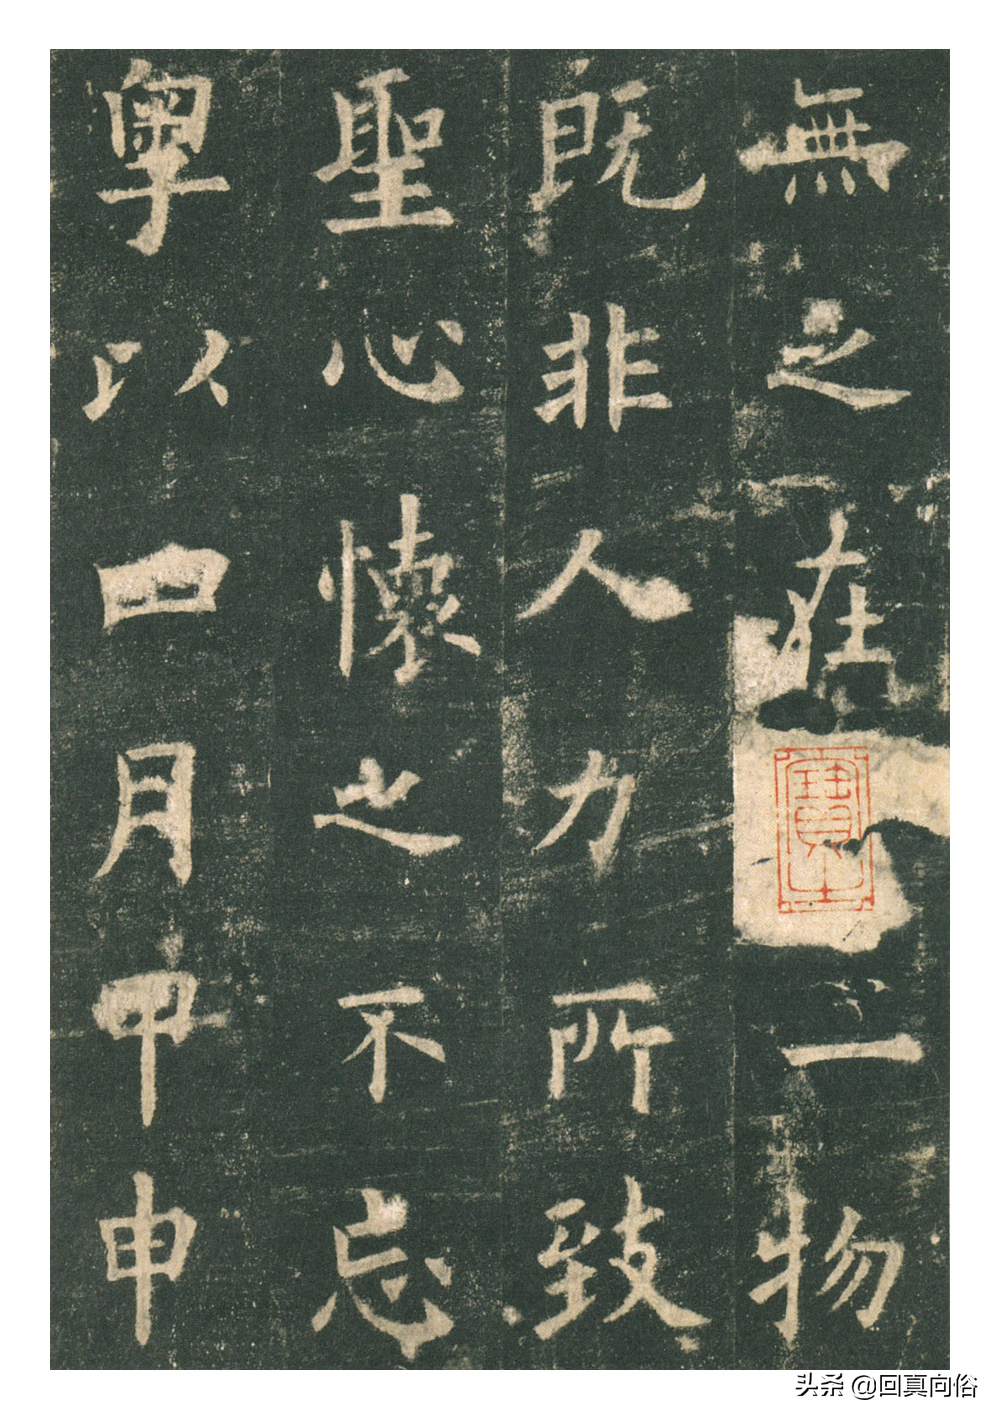 無之在一物
既非人力所致
聖心懷之不忘
粵以四月甲申
头条 @回真向俗